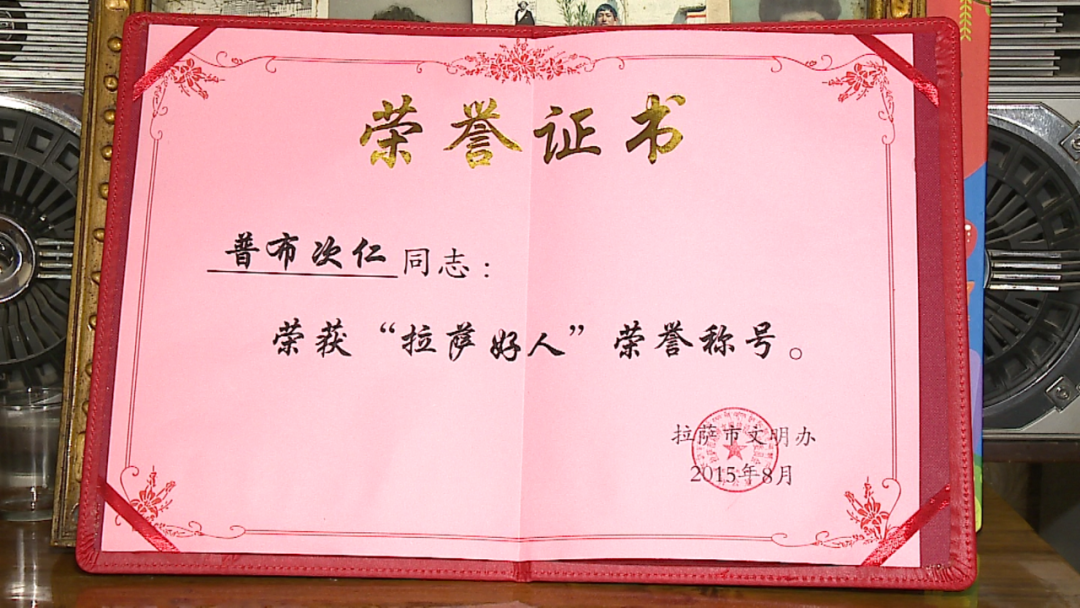 荣誉证书
普布次仁同志：
荣获“拉萨好人”荣誉称号。
拉萨市文明办
2015年8月